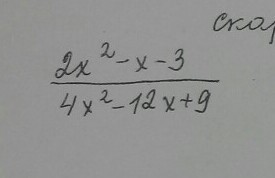 скор
2x² - x - 3
4x² - 12x + 9